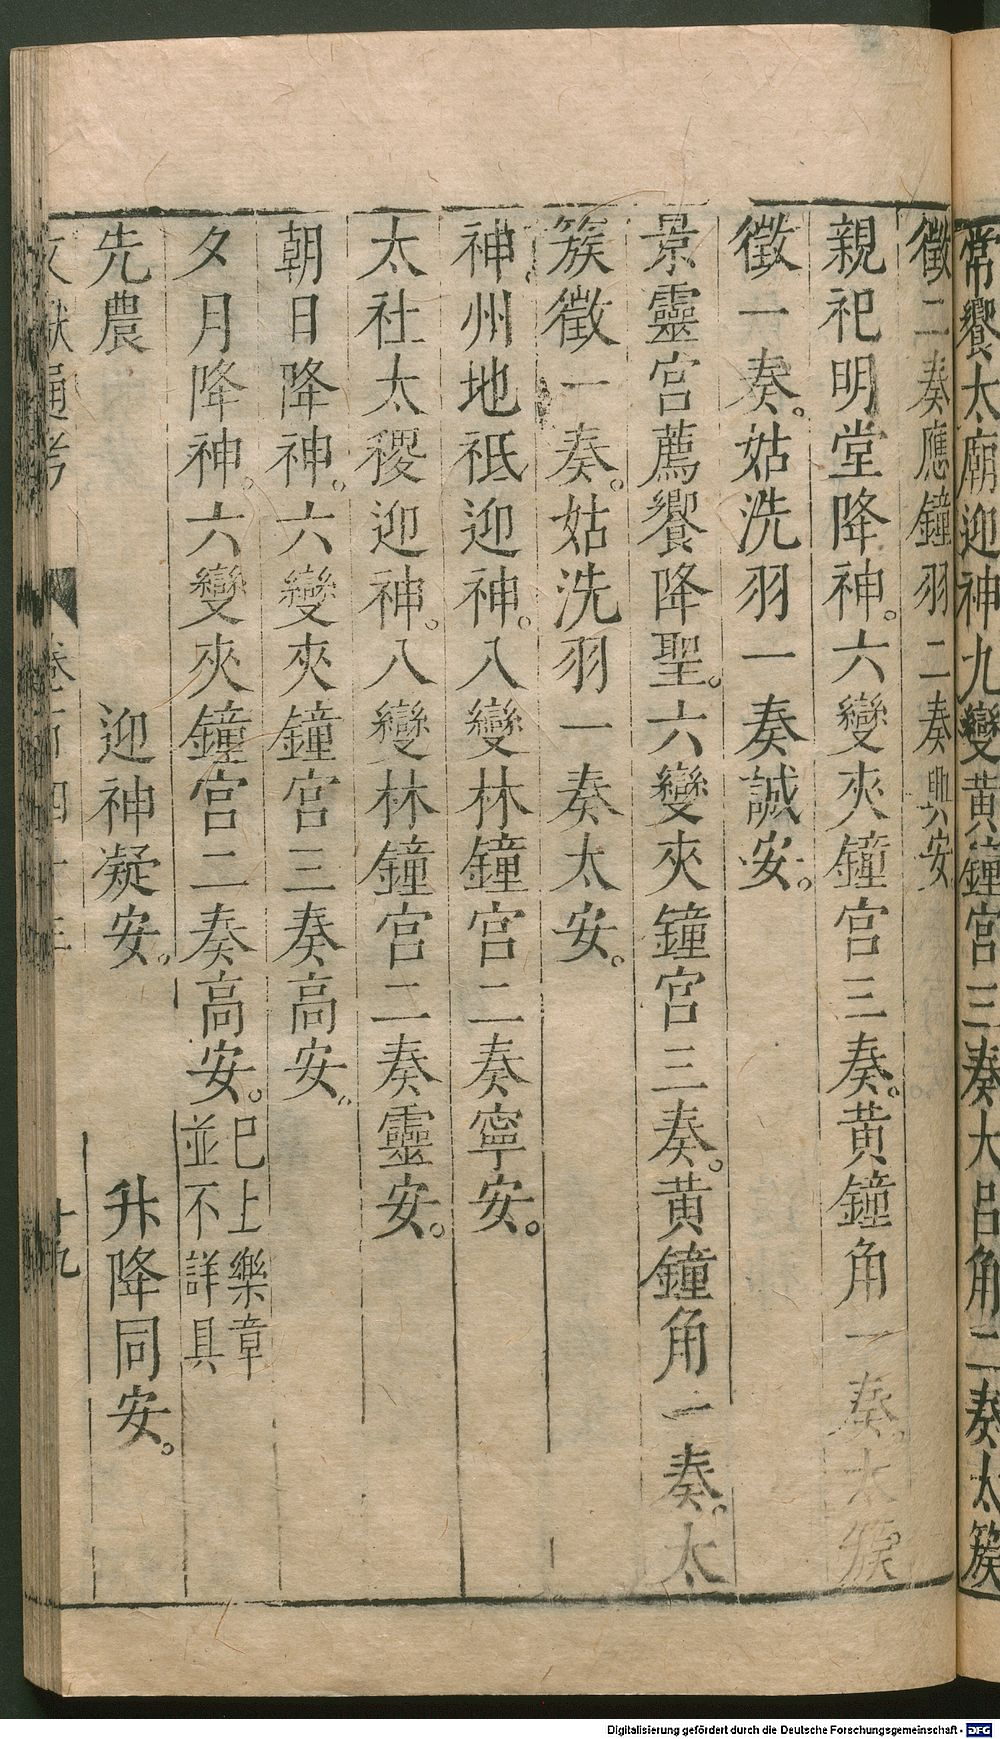 常饗太廟迎神九變黃鐘宮三奏大呂角二奏太簇
徵二奏應鐘羽二奏興安
親祀明堂降神。六變夾鐘宮三奏。黃鐘角一奏。太簇
徵一奏。姑洗羽一奏誠安。
景靈宮薦饗降聖。六變夾鐘宮三奏。黃鐘角一奏。太
簇徵一奏。姑洗羽一奏太安。
神州地祇迎神。八變林鐘宮二奏寧安。
太社太稷迎神。八變林鐘宮二奏靈安。
朝日降神。六變夾鐘宮三奏高安。
夕月降神。六變夾鐘宮二奏高安。
已上樂章
並不詳具
先農 迎神凝安。 升降同安。
文獻通考 卷一百四十三 十九
Digitalisierung gefördert durch die Deutsche Forschungsgemeinschaft - DFG